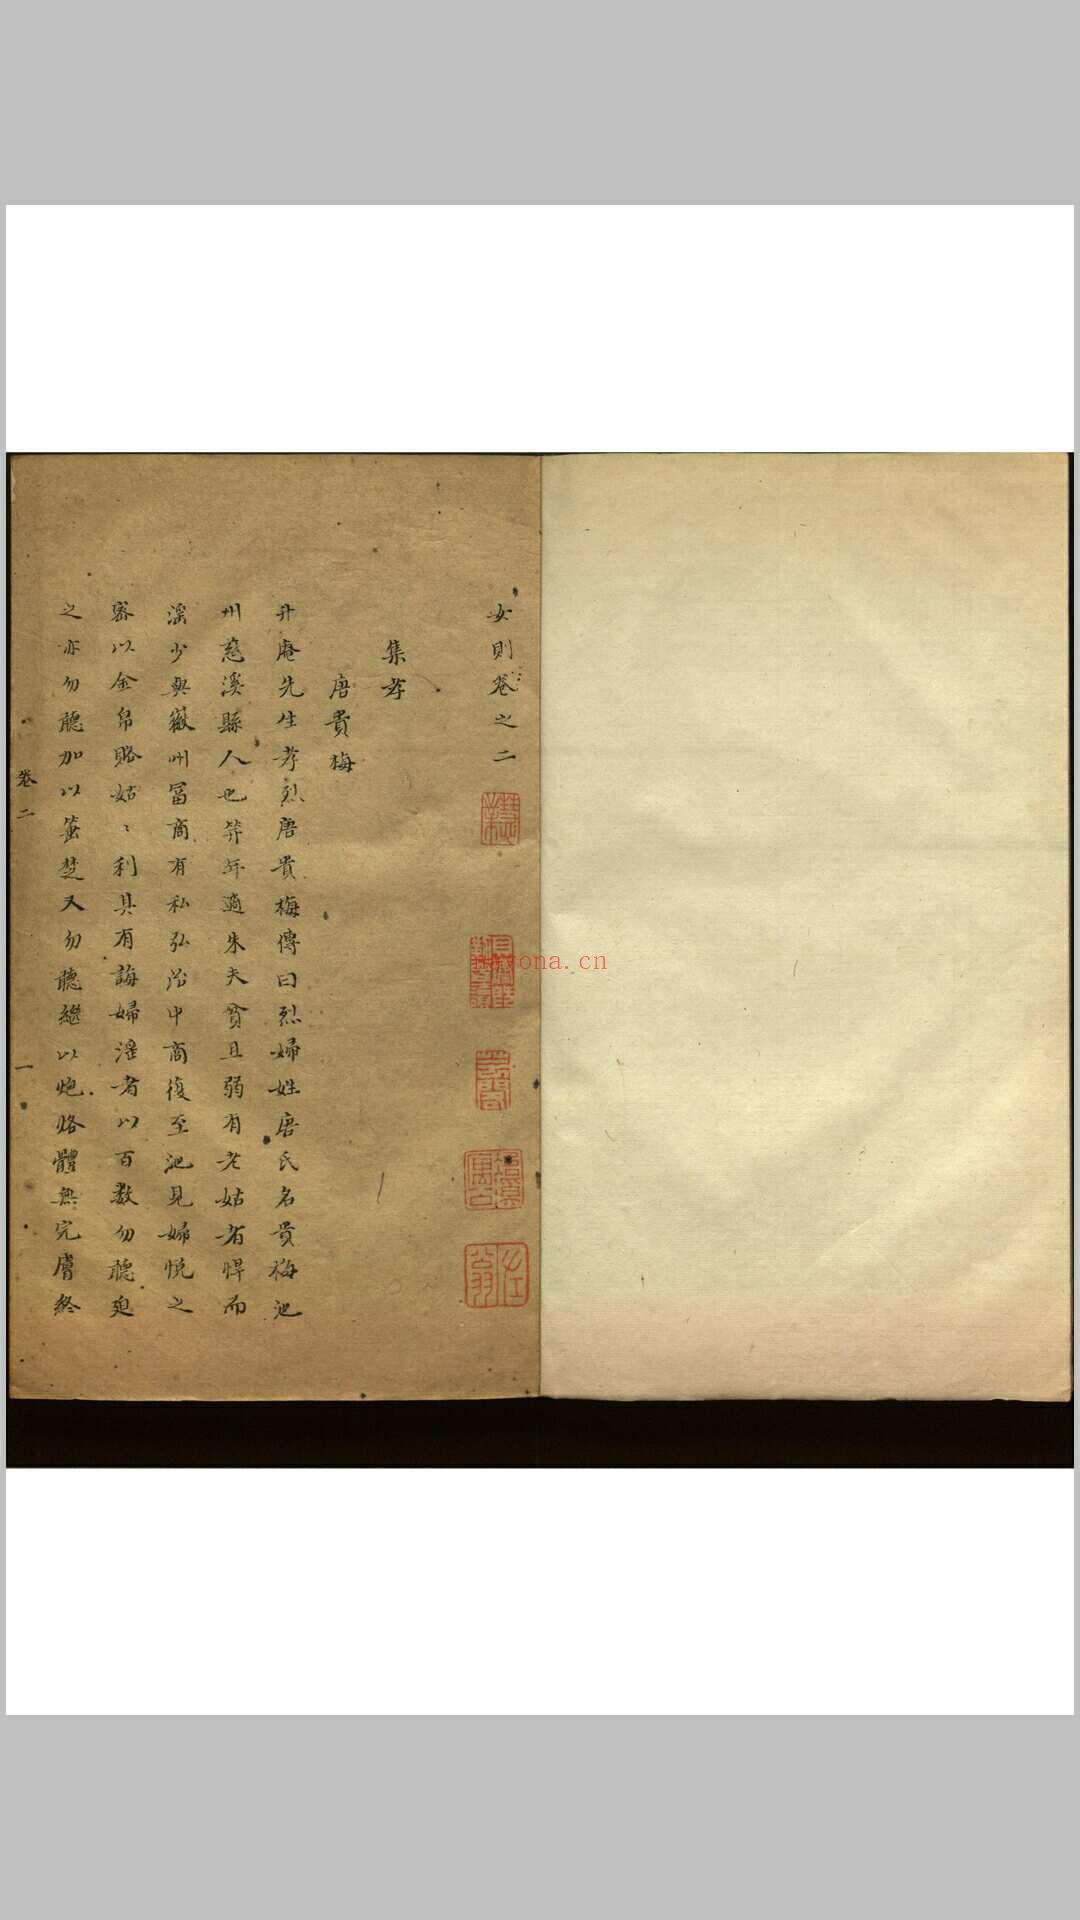 女則卷之二
集孝
唐貴梅
升庵先生孝烈唐貴梅傳曰烈婦姓唐氏名貴梅池
州慈溪縣人也笄年適朱夫貧且弱有老姑者悍而
淫少與徽州冨商有私弘治中商復至池見婦悅之
密以金帛賂姑〻利其有誨婦淫者以百數勿聽迫
之亦勿聽加以箠楚又勿聽繼以炮烙體無完膚終
卷二
一
yona.cn